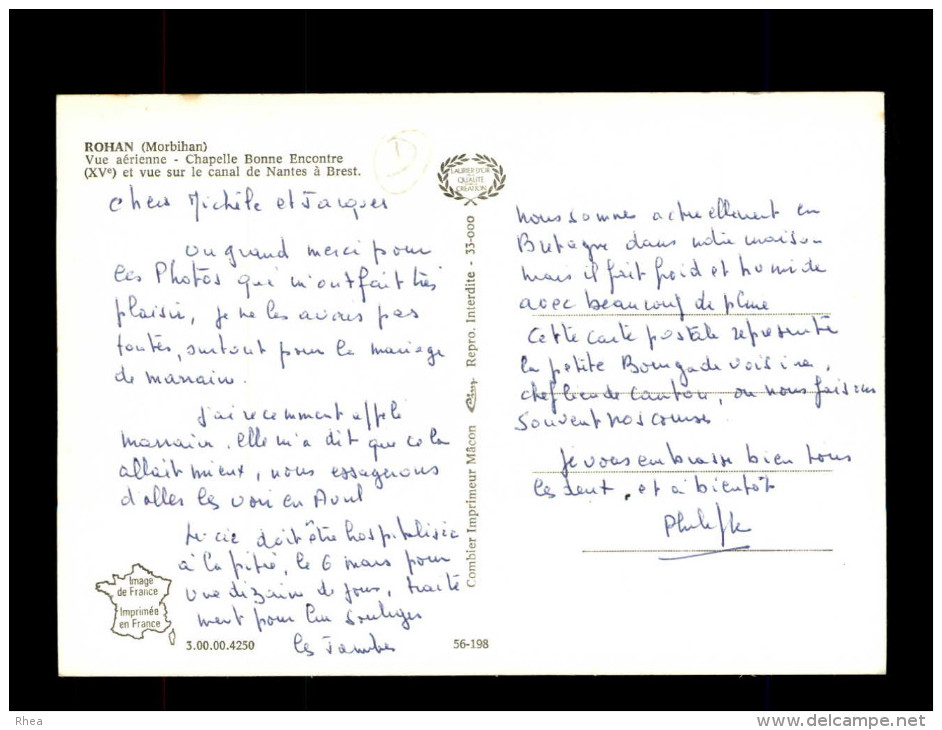 ROHAN (Morbihan)
Vue aérienne - Chapelle Bonne Encontre
(XVe) et vue sur le canal de Nantes à Brest.
LAURIER D'OR
QUALITÉ
CRÉATION
Chers Michèle et Jacques
Un grand merci pour
les Photos qui m'ont fait très
plaisir, je ne les avais pas
toutes, surtout pour le mariage
de marraine.
J'ai recemment appelé
marraine. elle m'a dit que cela
allait mieux, nous essayerons
d'aller les voir en Avril
doit être hospitalisée
à la pitié, le 6 mars pour
une dizaine de jours, traite
ment pour lui soulager
les Jambes
Image
de France
Imprimée
en France
3.00.00.4250
56-198
Combier Imprimeur Mâcon Repro. Interdite - 33-000
Nous sommes actuellement en
Bretagne dans notre maison
mais il fait froid et humide
avec beaucoup de pluie
Cette carte postale represente
la petite Bourgade voisine,
chef lieu de canton, ou nous faisons
souvent nos courses.
Je vous embrasse bien tous
les deux, et à bientôt
Philippe
Rhea
www.delcampe.net